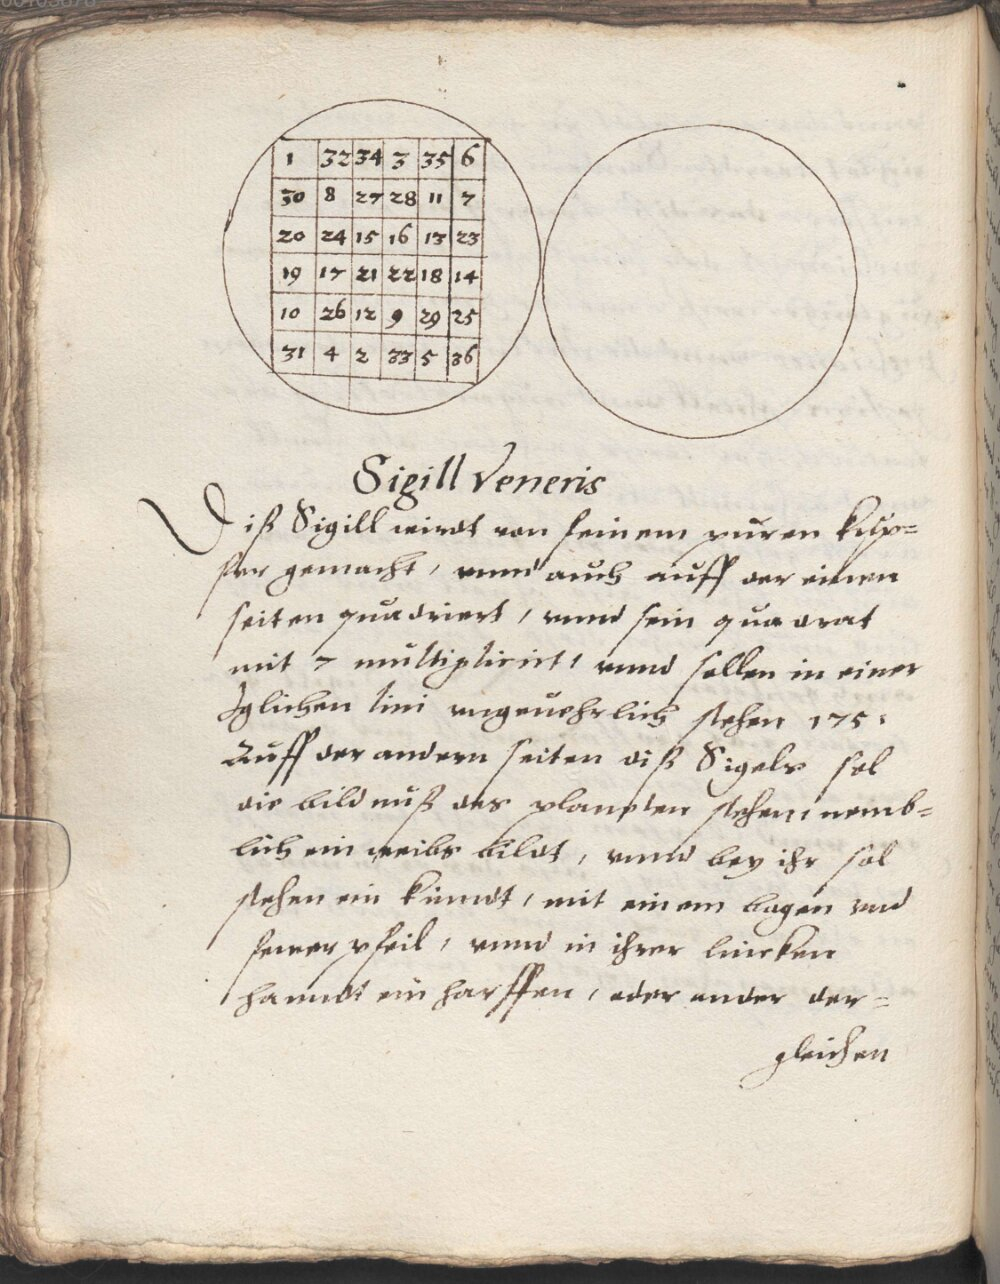 1 32 34 3 35 6
30 8 27 28 11 7
20 24 15 16 13 23
19 17 21 22 18 14
10 26 12 9 29 25
31 4 2 33 5 36
Sigill Veneris
Diß Sigill wirdt von feinem puren kup=
fer gemacht, vnnd auch auff der einen
seiten quadriert, vnnd sein quadrat
mit 7 multiplicirt, vnnd sollen in einer
Iglichen lini vngeuehrlich stehen 175.
Auff der andern seiten diß Sigels sol
die bildnuß des planeten stehen, nemb=
lich ein weibs bildt, vnnd bey ihr sol
stehen ein kindt, mit einem bogen vnd
fewer pfeil, vnnd in ihrer lincken
hanndt ein harffen, oder ander der=
gleichen